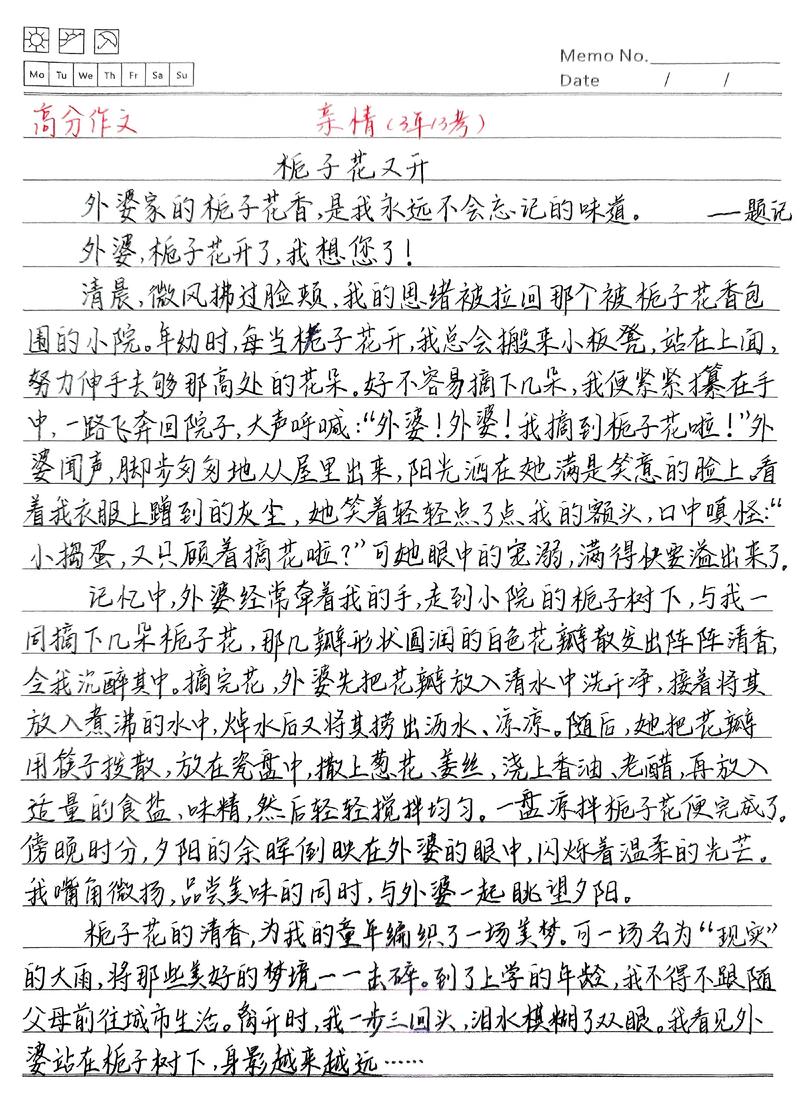 Memo No.
Mo Tu We Th Fr Sa Su
Date / /
高分作文 亲情(3年13考)
栀子花又开
外婆家的栀子花香,是我永远不会忘记的味道。 ——题记
外婆,栀子花开了,我想您了!
清晨,微风拂过脸颊,我的思绪被拉回那个被栀子花香包
围的小院。年幼时,每当栀子花开,我总会搬来小板凳,站在上面,
努力伸手去够那高处的花朵。好不容易摘下几朵,我便紧紧攥在手
中,一路飞奔回院子,大声呼喊:“外婆!外婆!我摘到栀子花啦!”外
婆闻声,脚步匆匆地从屋里出来,阳光洒在她满是笑意的脸上。看
着我衣服上蹭到的灰尘,她笑着轻轻点了点我的额头,口中嗔怪:“
小捣蛋,又只顾着摘花啦?”可她眼中的宠溺,满得快要溢出来了。
记忆中,外婆经常牵着我的手,走到小院的栀子树下,与我一
同摘下几朵栀子花,那几瓣形状圆润的白色花瓣散发出阵阵清香,
令我沉醉其中。摘完花,外婆先把花瓣放入清水中洗干净,接着将其
放入煮沸的水中,焯水后又将其捞出沥水、凉凉。随后,她把花瓣
用筷子拨散,放在瓷盘中,撒上葱花、姜丝,浇上香油、老醋,再放入
适量的食盐、味精,然后轻轻搅拌均匀。一盘凉拌栀子花便完成了。
傍晚时分,夕阳的余晖倒映在外婆的眼中,闪烁着温柔的光芒。
我嘴角微扬,品尝美味的同时,与外婆一起眺望夕阳。
栀子花的清香,为我的童年编织了一场美梦。可一场名为“现实”
的大雨,将那些美好的梦境一一击碎。到了上学的年龄,我不得不跟随
父母前往城市生活。离开时,我一步三回头,泪水模糊了双眼。我看见外
婆站在栀子树下,身影越来越远……